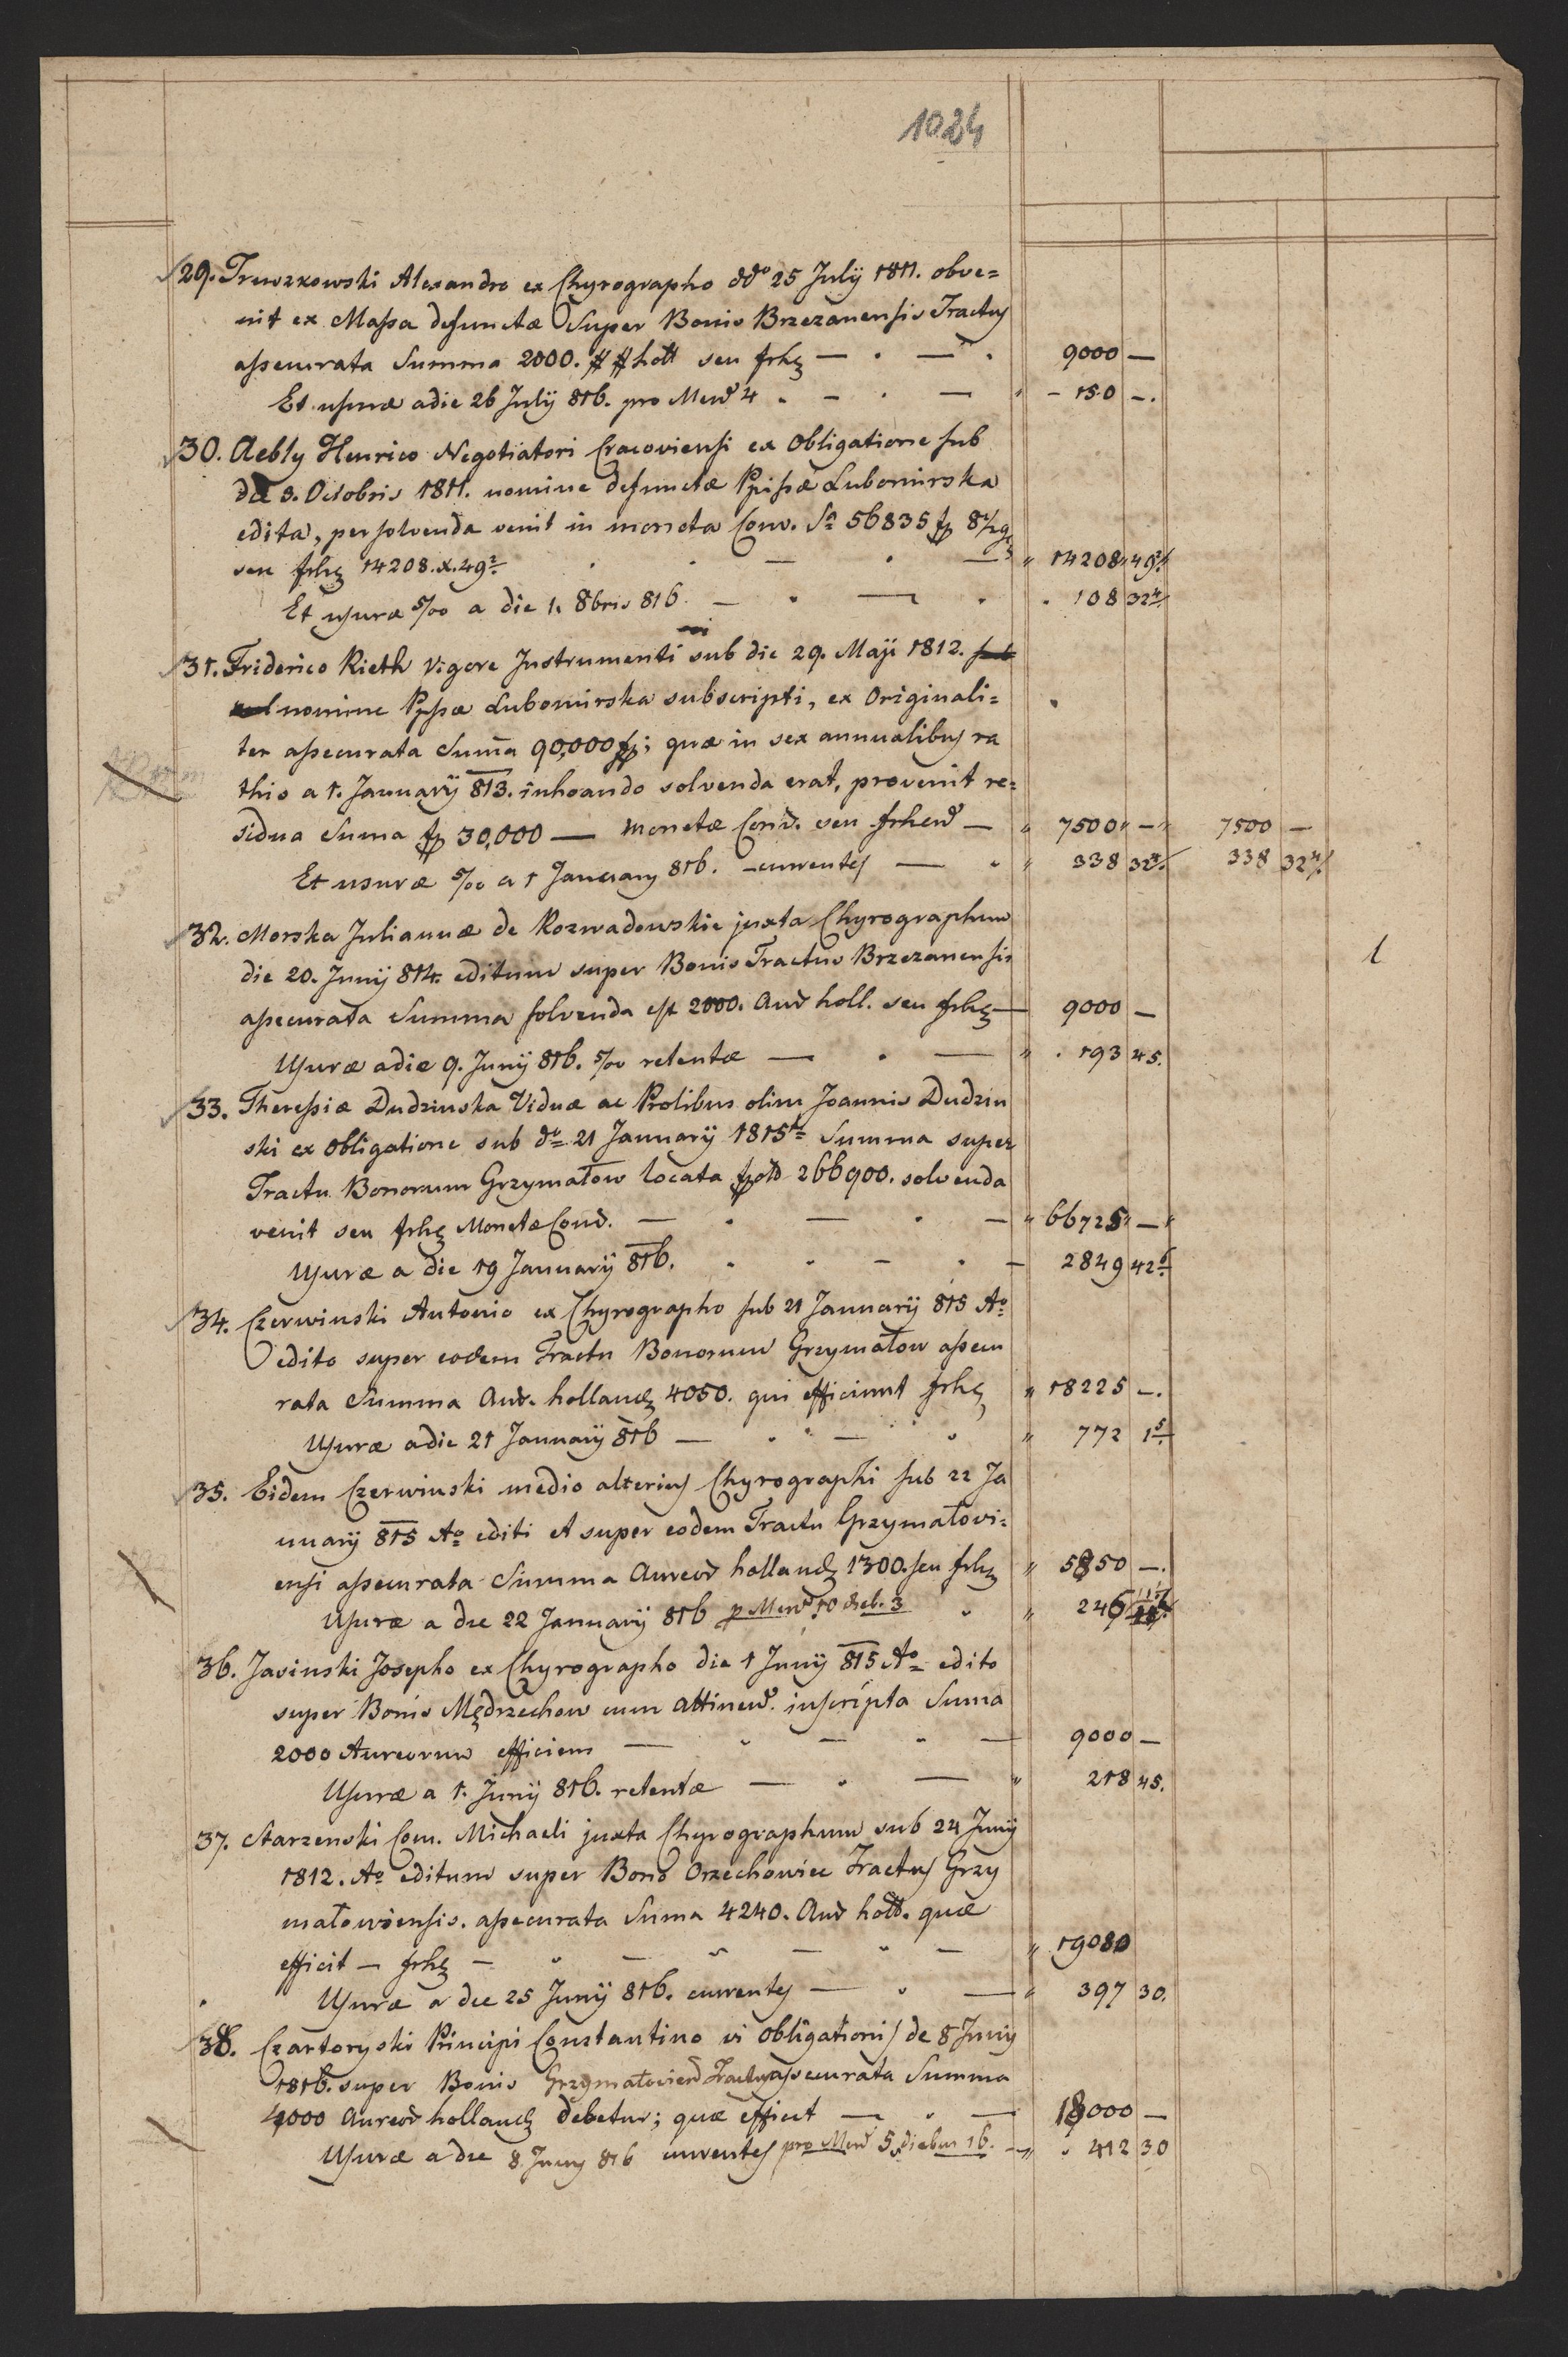 1024
29. Truszkowski Alexandro ex Chyrographo ddo 25 July 1811. obve=
nit ex Massa defunctæ Super Bonis Brzezanensis Tractus
assecurata Summa 2000. ## holl seu frhz — . — . 9000 —
Et usuræ a die 26 July 816. pro Mens 4 . — . — " - 150 —.
30. Aebly Henrico Negotiatori Cracoviensi ex Obligatione sub
die 3. Octobris 1811. nomine defunctæ Ppissæ Lubomirska
edita, persolvenda venit in moneta Conv. Sa 56835 fp 8
seu frhz 14208.x.49 2/. . . — . — " 14208 " 49 2/.
Et usuræ 5/00 a die 1. 8bris 816. — . — . . 108 32 4/.
31. Friderico Rieth vigore Instrumenti sub die 29. Maji 1812.
nomine Ppssæ Lubomirska subscripti, ex Originali= .
ter assecurata Suma 90,000 fp; quæ in sex annualibus ra
this a 1. January 813. inhoando solvenda erat, provenit re=
sidua Suma fp 30,000 — Monetæ Conv. seu frhen — " 7500 " — " 7500 —
Et usuræ 5/00 a 1 January 816. - currentes — " " 338 32 4/. 338 32 4/.
32. Morska Juliannæ de Rozwadowskie juxta Chyrographum
die 20. Junÿ 814. editum super Bonis Tractus Brzezanensis
assecurata Summa solvenda est 2000. Aur holl. seu frhz — 9000 —
Usuræ a die 9. Junÿ 816. 5/00 retentæ — . — " . 193 45.
33. Theressiæ Dudzinska Viduæ ac Prolibus olim Joannis Dudzin
ski ex obligatione sub do 21 Januarÿ 1815 Summa super
Tractu Bonorum Grzymałow locata 266900. solvenda
venit seu frhz Monetæ Conv. — . — . — " 66725 " — "
Usuræ a die 19 Januarÿ 816. . . — . — 2849 42 6/.
34. Czerwinski Antonio ex Chyrographo sub 21 Januarÿ 815 Ao
edito super eodem Tractu Bonorum Grzymałow assecu
rata Summa Aur. holland 4050. qui efficiunt frhz " 18225 —.
Usuræ a die 21 Januarÿ 816 — . " — . . " 772 1 5/.
35. Eidem Czerwinski medio alterius Chyrographi sub 22 Ja
nuarÿ 815 Ao editi et super eodem Tractu Grzymałovi=
ensi assecurata Summa Aureor holland 1300. seu frhz " 5850 —.
Usuræ a die 22 Januarÿ 816 p Mens 10 dieb. 3 . " 246
36. Jasinski Josepho ex Chyrographo die 1 Junÿ 815 Ao edito
super Bonis Mędrzechow cum attinen. inscripta Suma
2000 Aureorum efficiens — " — " — 9000 —
Usuræ a 1. Junÿ 816. retentæ — . — " 218 45.
37. Starzenski Com. Michaeli juxta Chyrographum sub 24 Junÿ
1812. Ao editum super Bona Orzechowiec Tractus Grzy
małowiensis. assecurata Suma 4240. Aur holl. quæ
efficit — frhz — " — " — " — " 19080
Usuræ a die 25 Junÿ 816. currentes — . — " 397 30.
38. Czartoryski Principi Constantino vi obligationis de 8 Junÿ
1816. super Bonis Grzymałowiens Tractus assecurata Summa
4000 Aureor holland debetur; quæ efficit — . — 18000 —
Usuræ a die 8 Juny 816 currentes pro Mens 5 diebus 16. — " . 412 30